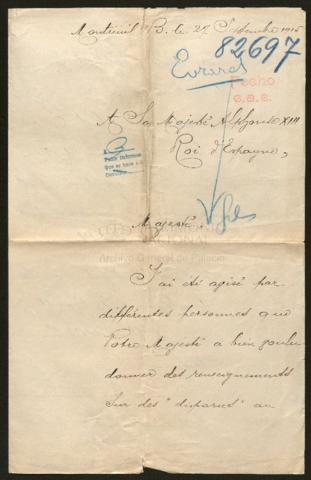 Montreuil s/B. le 27 Septembre 1915
82697
Evrard
Fecho
A Sa Majesté Alphonse XIII
Roi d'Espagne,
Majesté
Archivo General de Palacio
J'ai été avisé par
différentes personnes que
Votre Majesté a bien voulu
donner des renseignements
sur des "disparus" au